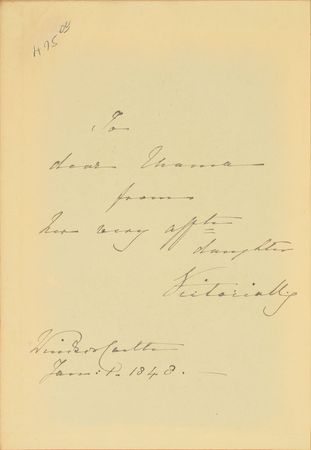 To
dear Mama
from
her very affte
daughter
Victoria R
Windsor Castle
Jan: 1. 1848.